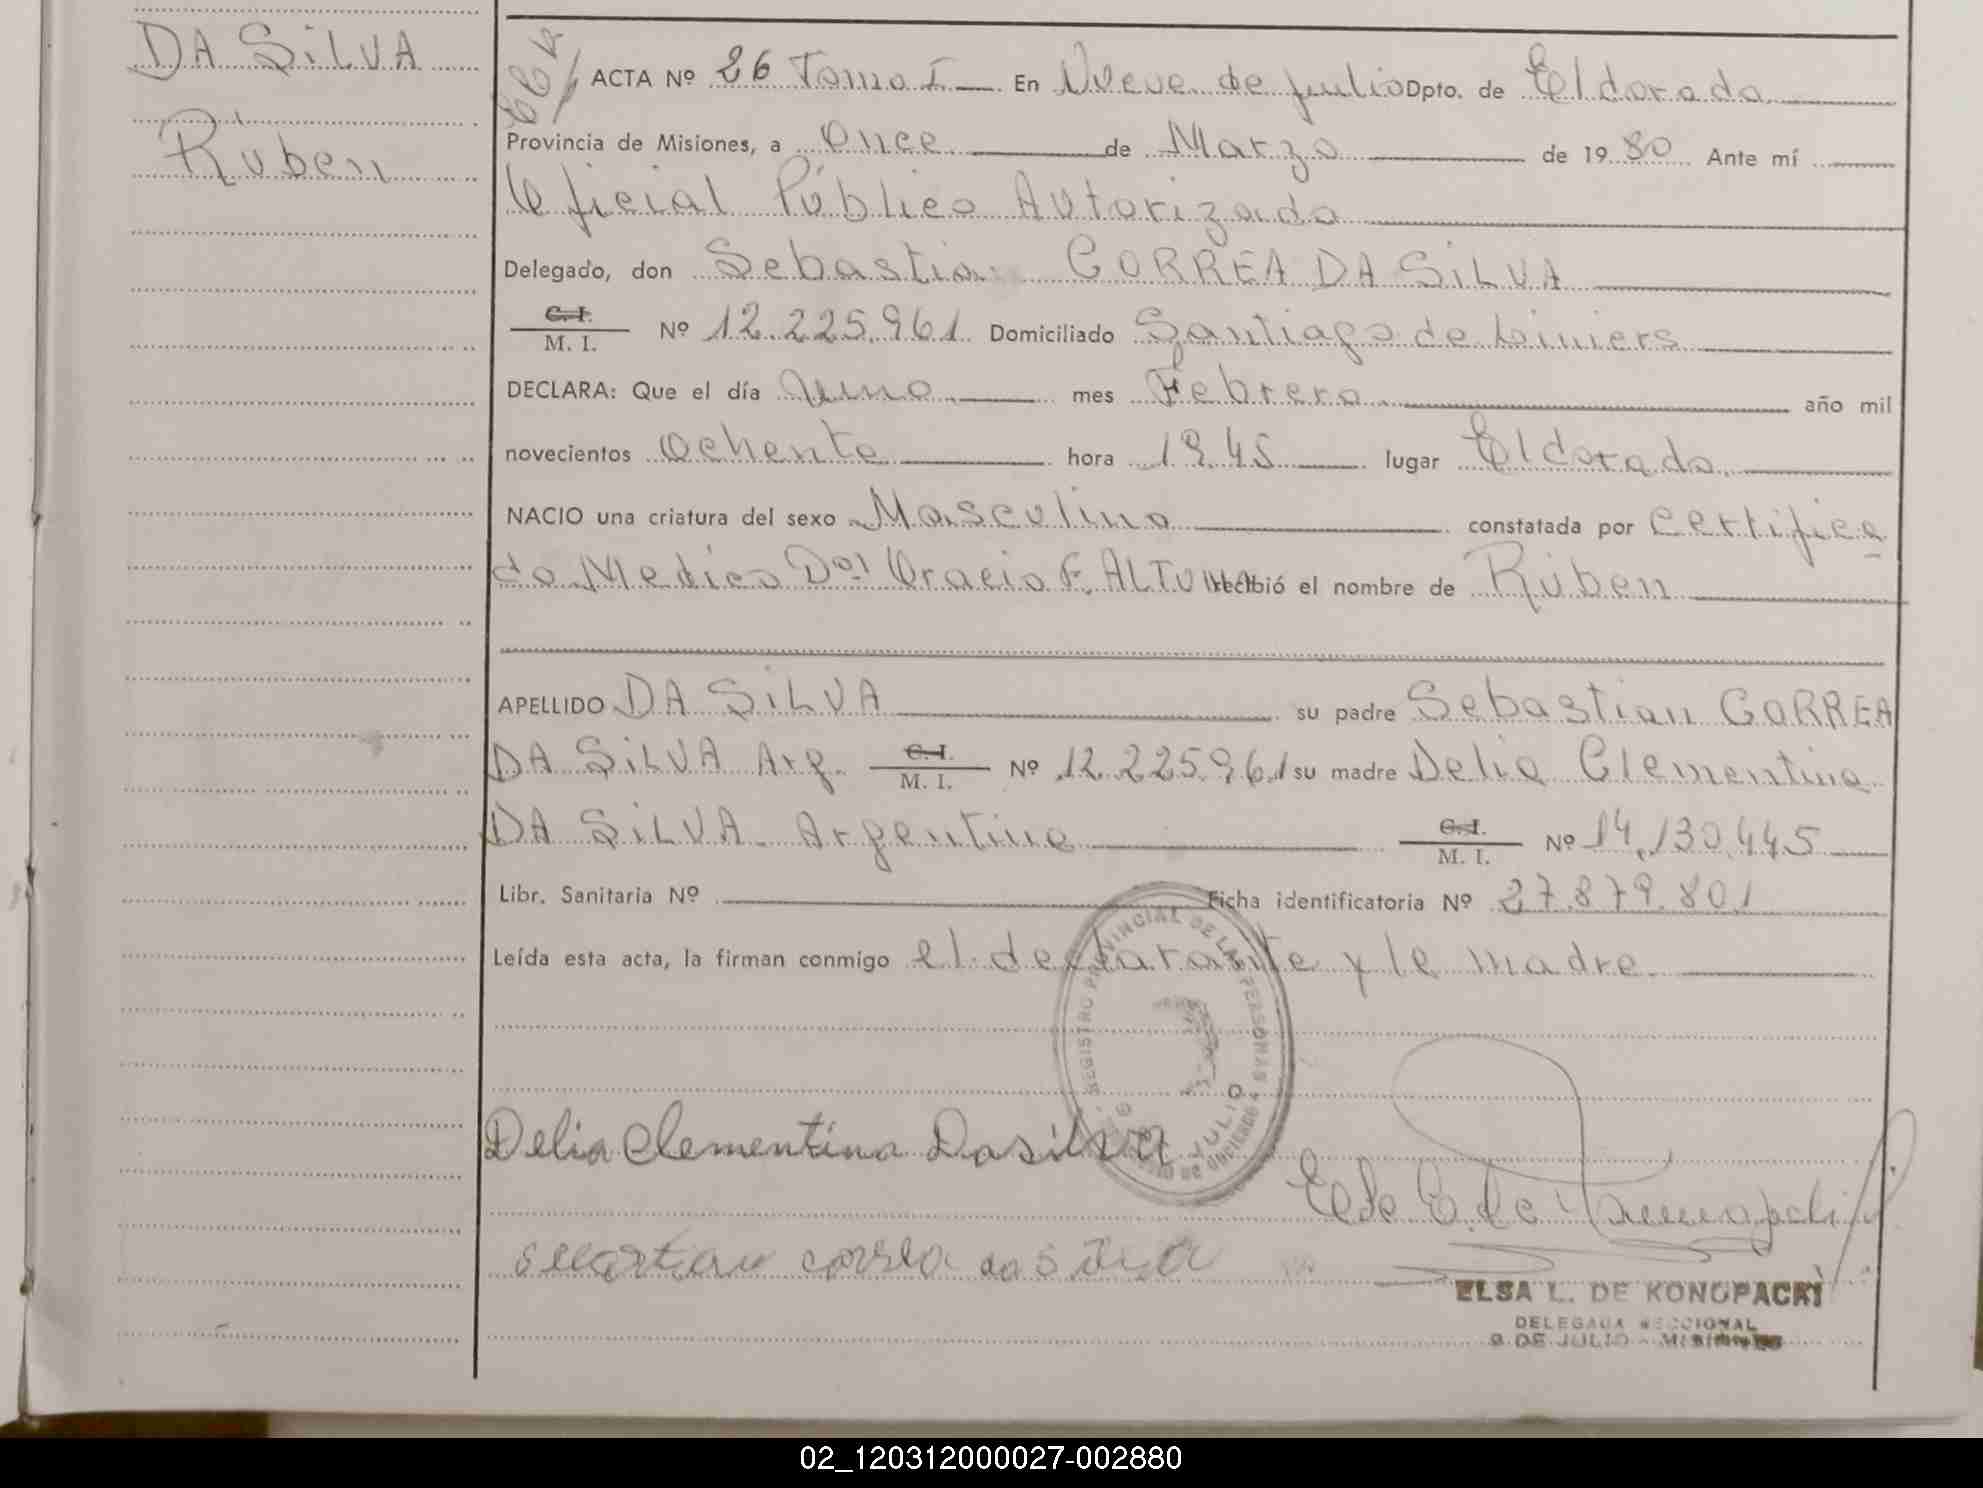 DA SILVA
Rúben
ACTA Nº 26 Tomo I En Nueve de Julio Dpto. de Eldorado
Provincia de Misiones, a Once de Marzo de 1980 Ante mí
Oficial Público Autorizado
Delegado, don Sebastian CORREA DA SILVA
C. I.
M. I. Nº 12.225.961 Domiciliado Santiago de Liniers
DECLARA: Que el día uno mes Febrero año mil
novecientos ochenta hora 19.45 lugar Eldorado
NACIO una criatura del sexo Masculino constatada por certifica
do Medico Dor Oracio F. ALTUNA recibió el nombre de Rúben
APELLIDO DA SILVA su padre Sebastian CORREA
DA SILVA Arg. C. I. M. I. Nº 12.225.961 su madre Delia Clementina
DA SILVA. Argentina C. I. M. I. Nº 14.130.445
Libr. Sanitaria Nº Ficha identificatoria Nº 27.879.801
Leída esta acta, la firman conmigo el declarante y la madre.
REGISTRO PROVINCIAL DE LAS PERSONAS
9 DE JULIO
Delia Clementina Dasilva
correa da silva
ELSA L. DE KONOPACKI
DELEGADA SECCIONAL
9 DE JULIO - MISIONES
02_120312000027-002880